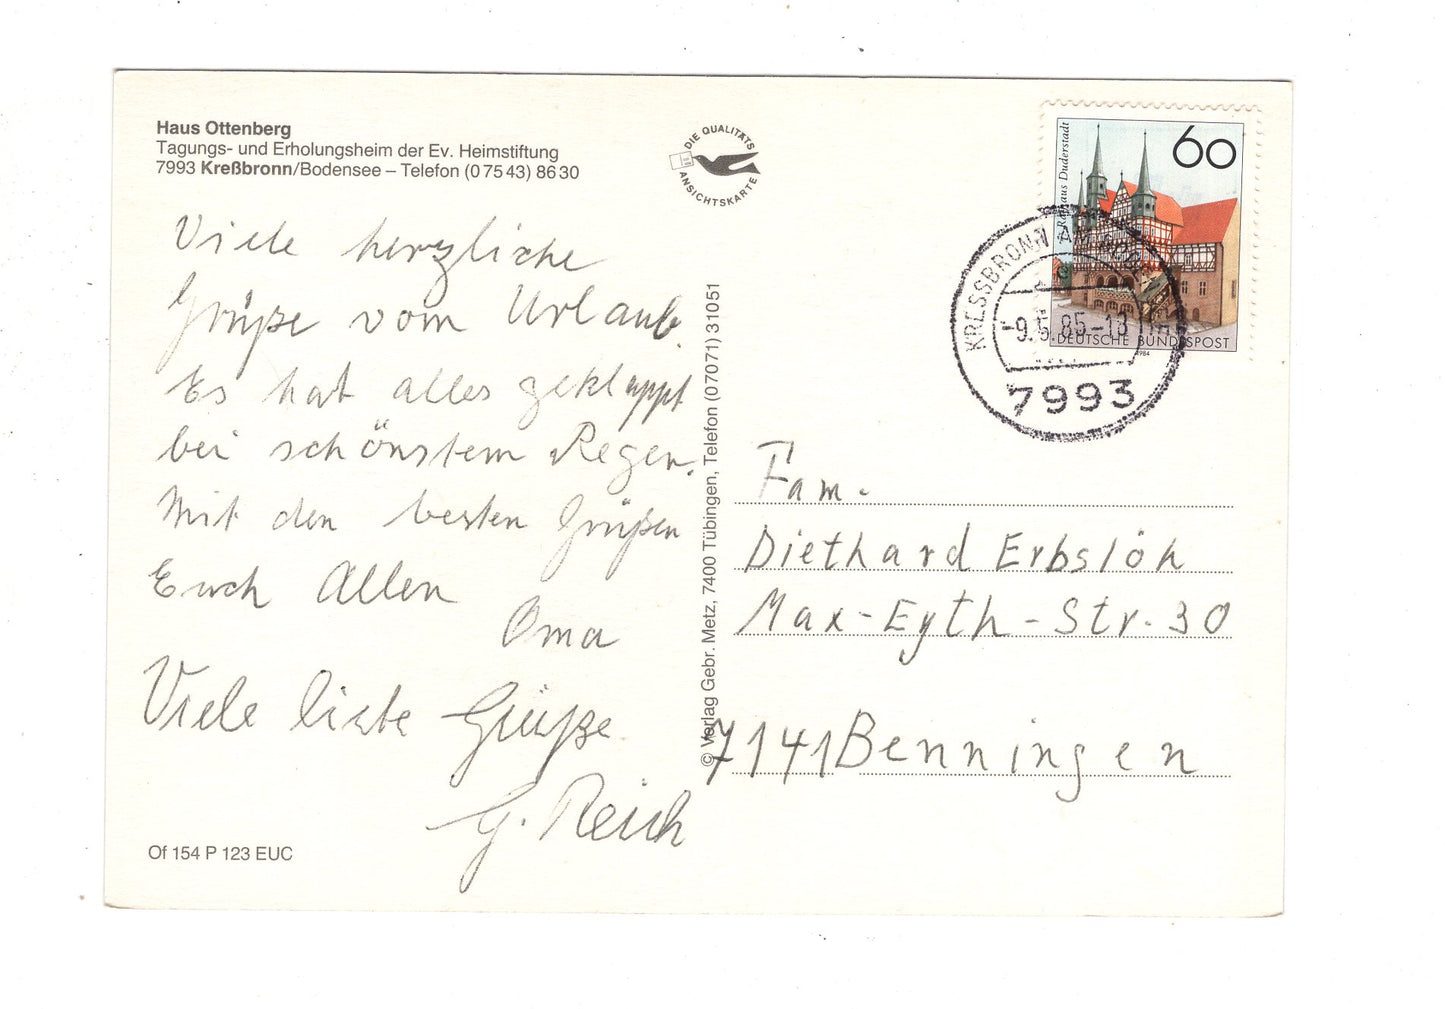 Haus Ottenberg
Tagungs- und Erholungsheim der Ev. Heimstiftung
7993 Kreßbronn/Bodensee – Telefon (0 75 43) 86 30
DIE QUALITÄTS
ANSICHTSKARTE
60
Rathaus Duderstadt
DEUTSCHE BUNDESPOST
1984
KRESSBRONN AM
-9.5.85-13
7993
Viele herzliche
Grüße vom Urlaub.
Es hat alles geklappt
bei schönstem Regen.
Mit den besten Grüßen
Euch Allen
Oma
Viele liebe Grüße
G. Reich
Of 154 P 123 EUC
© Verlag Gebr. Metz, 7400 Tübingen, Telefon (07071) 31051
Fam.
Diethard Erbslöh
Max-Eyth-Str. 30
7141 Benningen